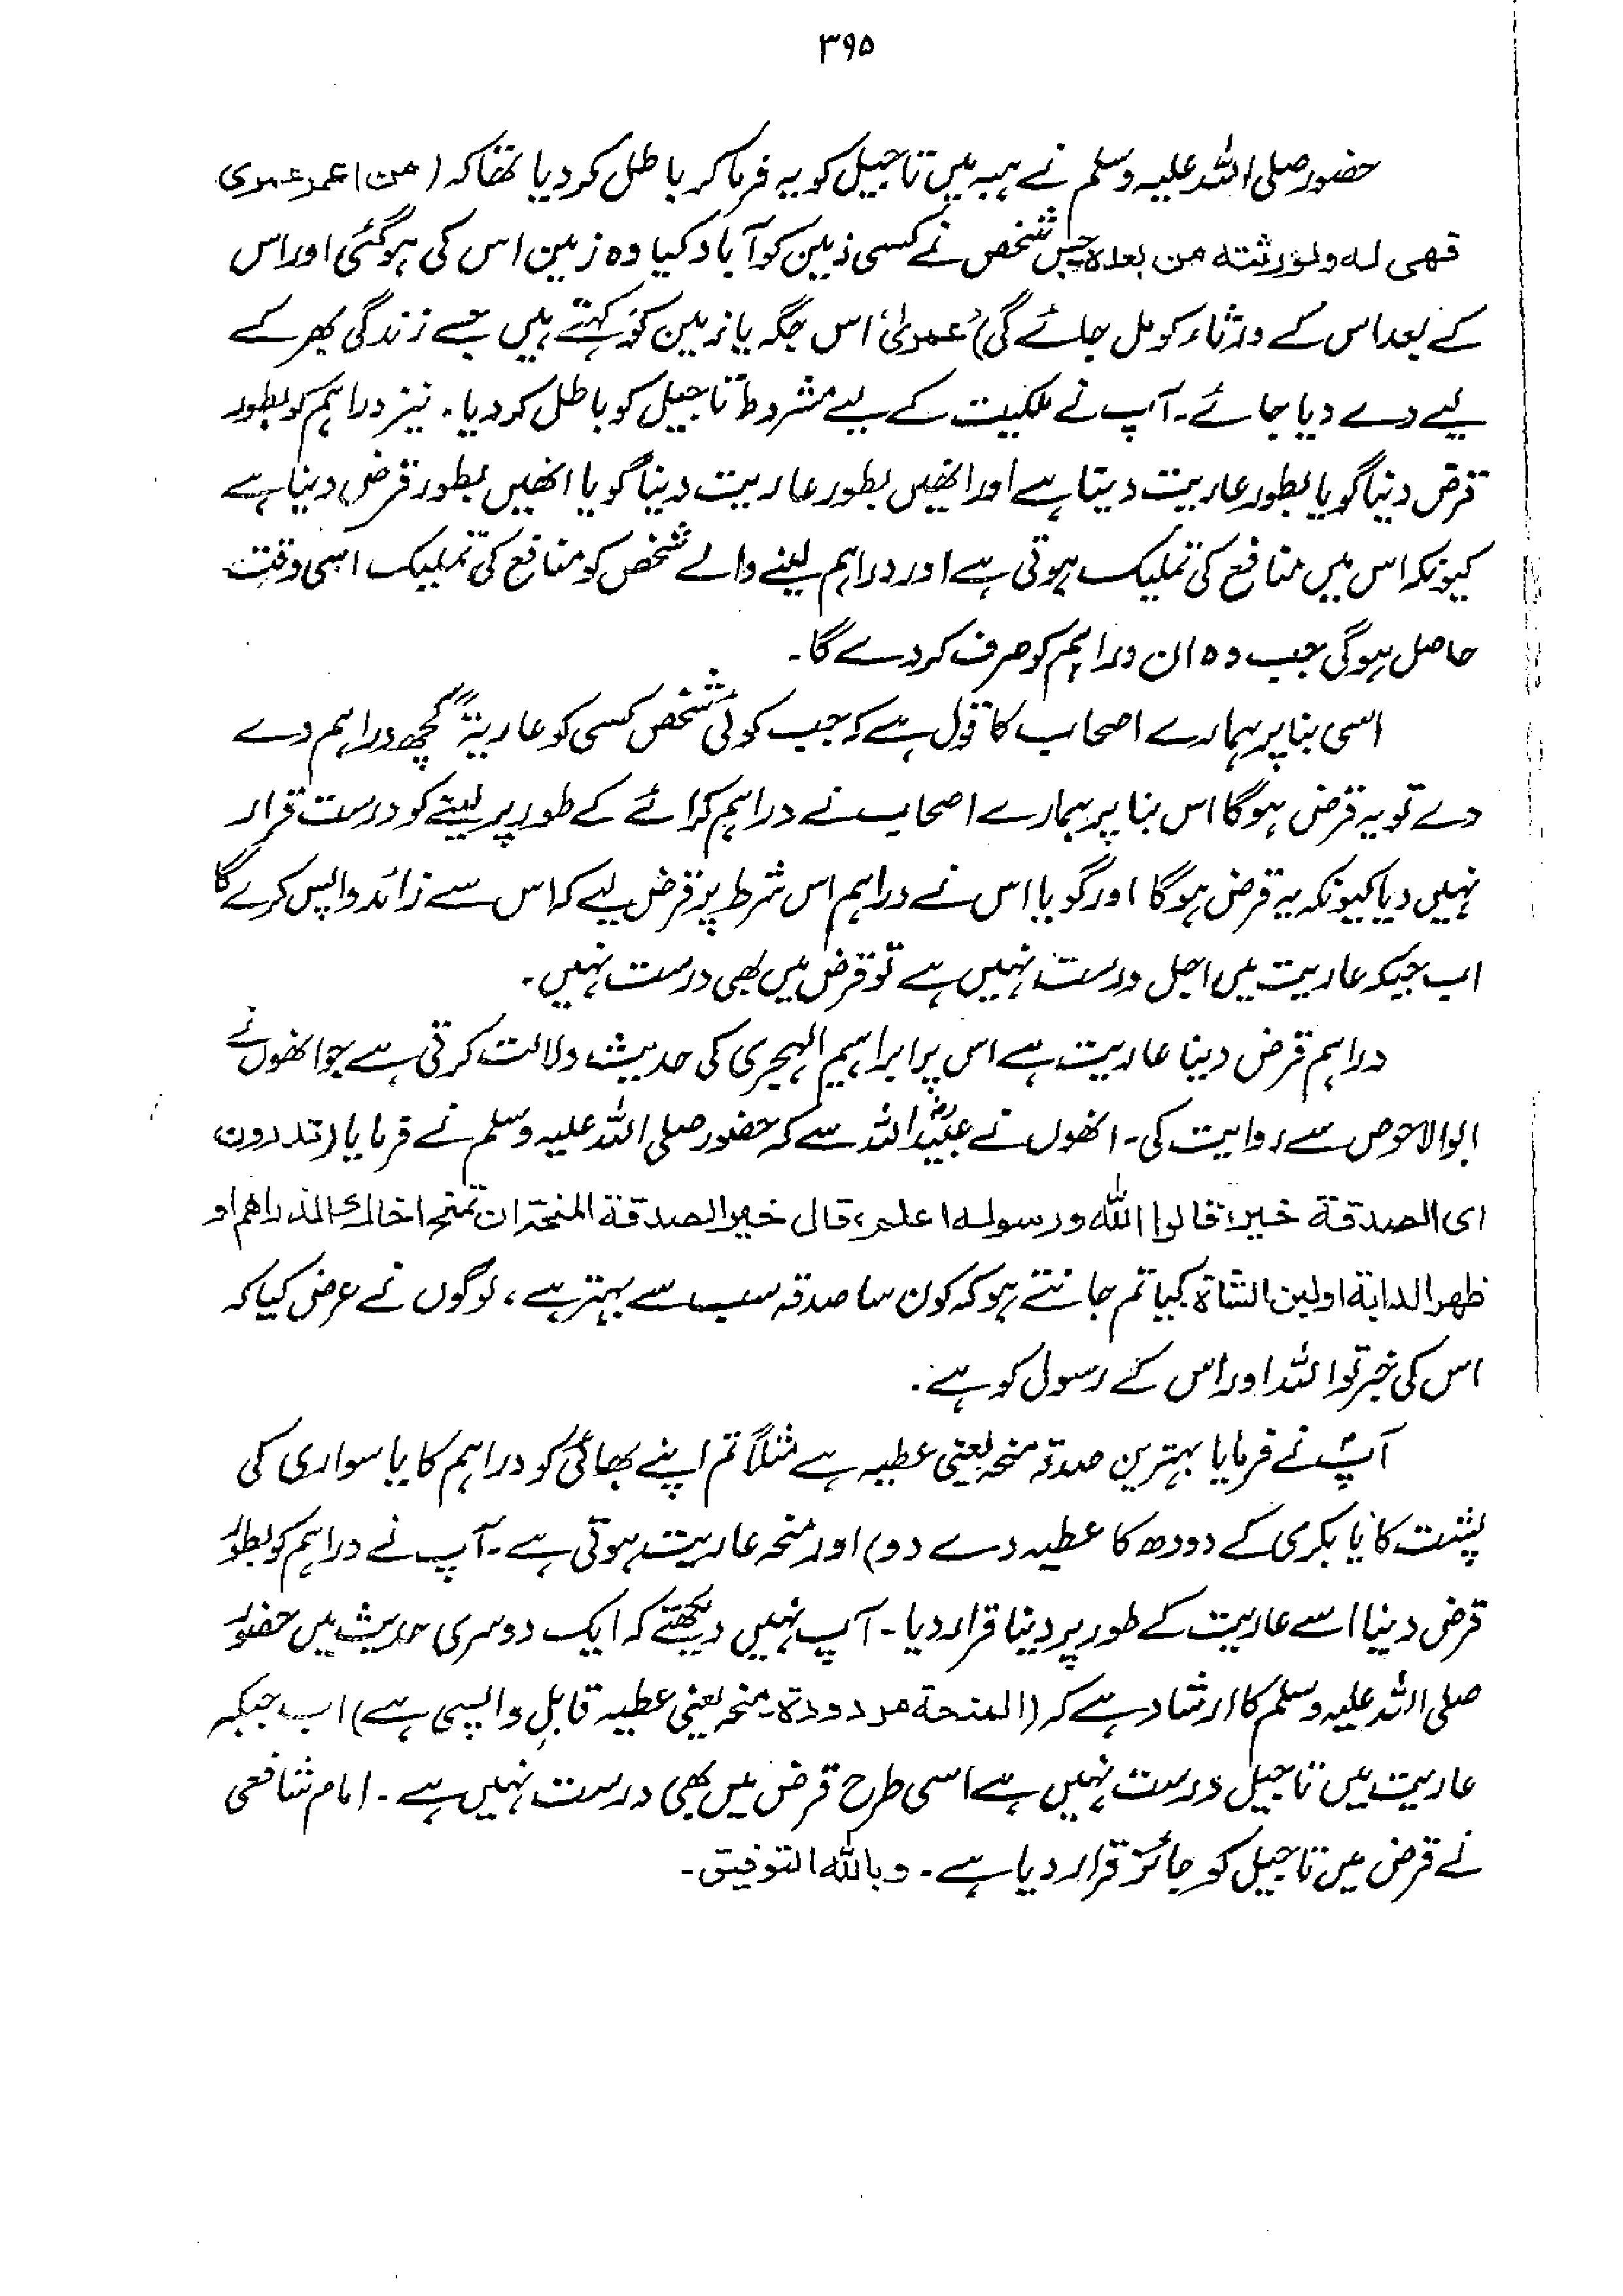 ۳۹۵
حضور صلی اللہ علیہ وسلم نے ہبہ میں تاجیل کو یہ فرما کر باطل کر دیا تھا کہ (من اعمر عمری
فھی لہ ولورثتہ من بعدہ جس شخص نے کسی زمین کو آباد کیا وہ زمین اس کی ہو گئی اور اس
کے بعد اس کے ورثاء کو مل جائے گی) ُعمریٰ ٗ اس جگہ یا زمین کو کہتے ہیں جسے زندگی بھر کے
لیے دے دیا جائے۔ آپ نے ملکیت کے لیے مشروط تاجیل کو باطل کر دیا۔ نیز دراہم کو بطور
قرض دینا گویا بطور عاریت دیتا ہے اور انھیں بطور عاریت دینا گویا انھیں بطور قرض دینا ہے
کیونکہ اس میں منافع کی تملیک ہوتی ہے اور دراہم لینے والے شخص کو منافع کی تملیک اسی وقت
حاصل ہو گی جب وہ ان دراہم کو صرف کر دے گا۔
اسی بنا پر ہمارے اصحاب کا قول ہے کہ جب کوئی شخص کسی کو عاریۃً کچھ دراہم دے
دے تو یہ قرض ہوگا اس بنا پر ہمارے اصحاب نے دراہم کرائے کے طور پر لینے کو درست قرار
نہیں دیا کیونکہ یہ قرض ہوگا اور گویا اس نے دراہم اس شرط پر قرض لیے کہ اس سے زائد واپس کرے گا
اب جبکہ عاریت میں اجل درست نہیں ہے تو قرض میں بھی درست نہیں۔
دراہم قرض دینا عاریت ہے اس پر ابراہیم الہجری کی حدیث دلالت کرتی ہے جو انھوں نے
ابو الاحوص سے روایت کی۔ انھوں نے عبیداللہؓ سے کہ حضور صلی اللہ علیہ وسلم نے فرمایا (تدرون
ای الصدقة خیر؛ قالوا اللہ ورسولہ اعلم، قال خیر الصدقة المنحة ان تمنح اخاك الدراھم او
ظھر الدابة او لبن الشاة کیا تم جانتے ہو کہ کون سا صدقہ سب سے بہتر ہے، لوگوں نے عرض کیا کہ
اس کی خبر تو اللہ اور اس کے رسول کو ہے۔
آپؐ نے فرمایا بہترین صدقہ منحہ یعنی عطیہ ہے مثلاً تم اپنے بھائی کو دراہم کا یا سواری کی
پشت کا یا بکری کے دودھ کا عطیہ دے دو) اور منحہ عاریت ہوتی ہے۔ آپ نے دراہم کو بطور
قرض دینا اسے عاریت کے طور پر دینا قرار دیا۔ آپ نہیں دیکھتے کہ ایک دوسری حدیث میں حضور
صلی اللہ علیہ وسلم کا ارشاد ہے کہ (المنحة مردودة۔ منحہ یعنی عطیہ قابلِ واپسی ہے) اب جبکہ
عاریت میں تاجیل درست نہیں ہے اسی طرح قرض میں بھی درست نہیں ہے۔ امام شافعی
نے قرض میں تاجیل کو جائز قرار دیا ہے۔ وباللہ التوفیق۔